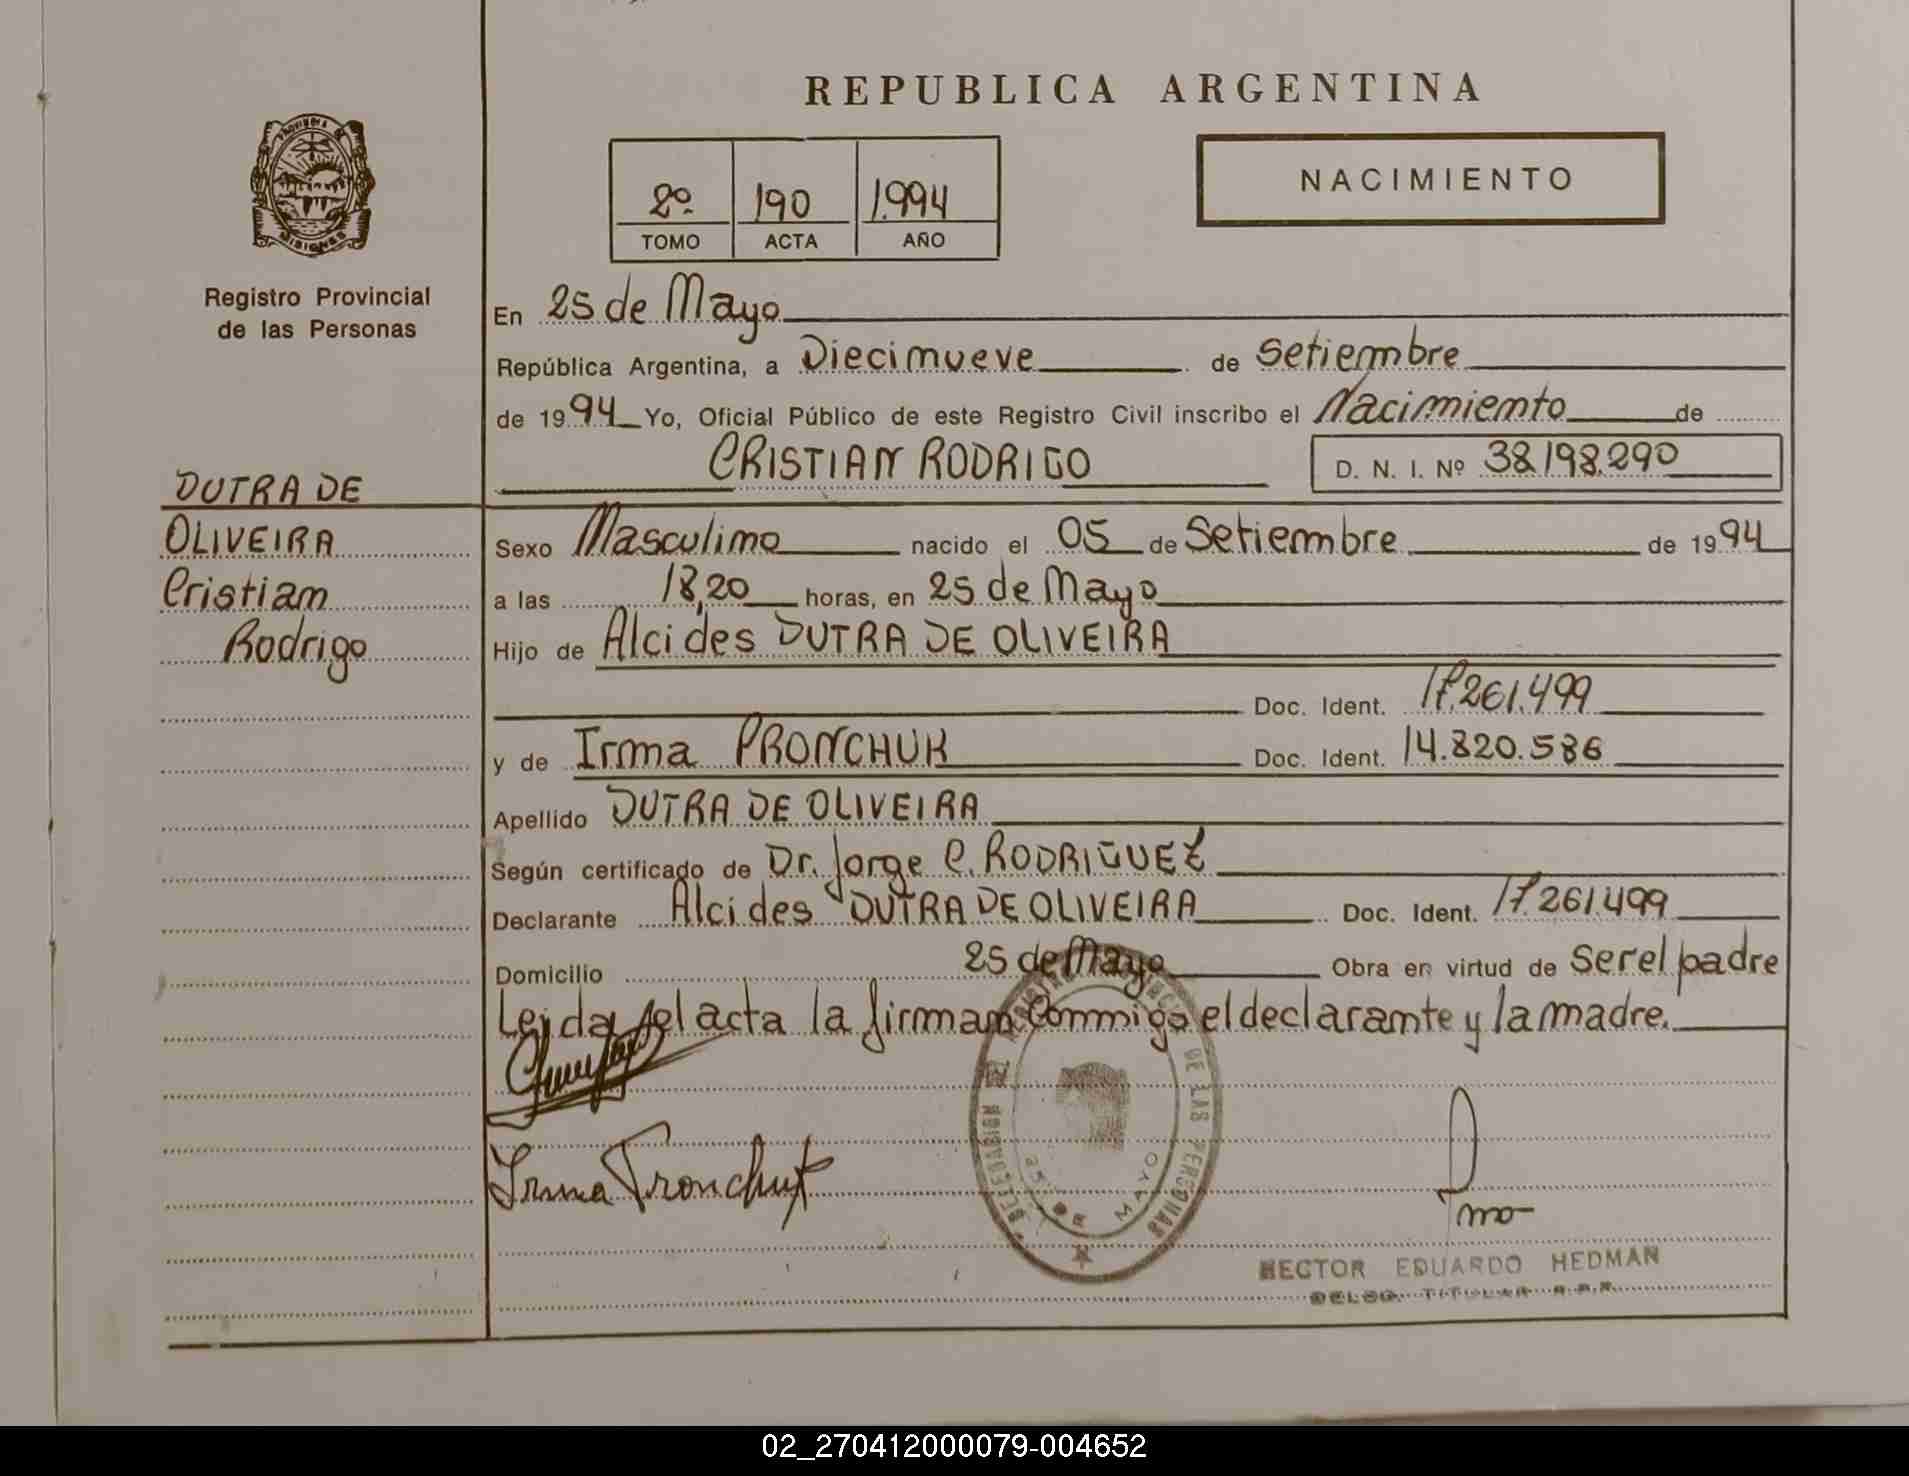 REPUBLICA ARGENTINA
PROVINCIA DE MISIONES
Registro Provincial
de las Personas
NACIMIENTO
2º 190 1.994
TOMO ACTA AÑO
En 25 de Mayo
República Argentina, a Diecinueve de Setiembre
de 1994 Yo, Oficial Público de este Registro Civil inscribo el Nacimiento de
CRISTIAN RODRIGO D. N. I. Nº 38.198.290
DUTRA DE
OLIVEIRA
Cristian
Rodrigo
Sexo Masculino nacido el 05 de Setiembre de 1994
a las 18,20 horas, en 25 de Mayo
Hijo de Alcides DUTRA DE OLIVEIRA
Doc. Ident. 17.261.499
y de Irma PRONCHUK Doc. Ident. 14.820.586
Apellido DUTRA DE OLIVEIRA
Según certificado de Dr. Jorge C. RODRIGUEZ
Declarante Alcides DUTRA DE OLIVEIRA Doc. Ident. 17.261.499
Domicilio 25 de Mayo Obra en virtud de ser el padre
Leida el acta la firman conmigo el declarante y la madre.
Irma Pronchuk
DELEGACION DEL REGISTRO PROVINCIAL DE LAS PERSONAS
25 DE MAYO
HECTOR EDUARDO HEDMAN
DELEG. TITULAR R.P.P.
02_270412000079-004652